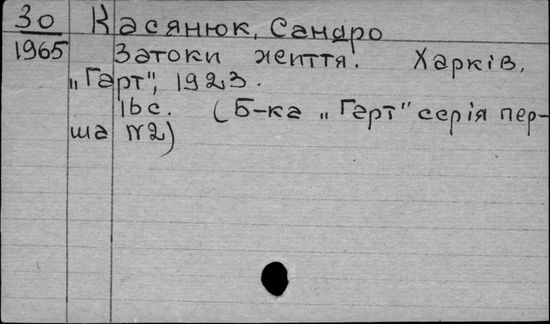 30 Касянюк, Сандро
1965 Затоки життя. Харків,
„Гарт", 1923.
16с. (Б-ка „Гарт" серія пер-
ша №2)